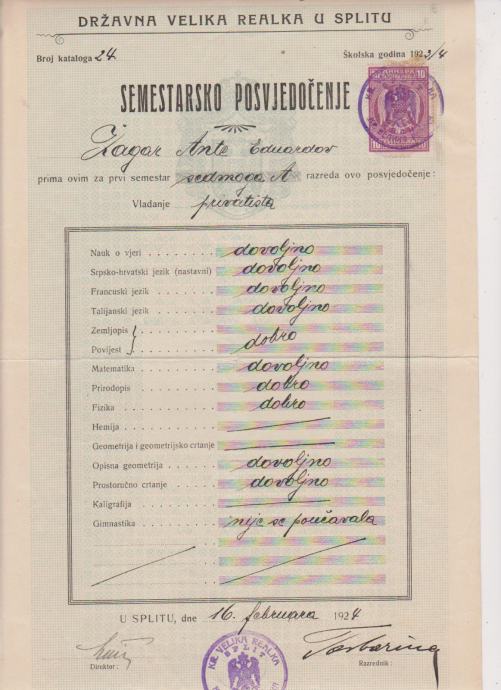 DRŽAVNA VELIKA REALKA U SPLITU
Broj kataloga 24 Školska godina 1923/4
SEMESTARSKO POSVJEDOČENJE
10 10
Žagar Ante Eduardov
prima ovim za prvi semestar sedmoga A razreda ovo posvjedočenje:
Vladanje privatista
Nauk o vjeri dovoljno
Srpsko-hrvatski jezik (nastavni) dovoljno
Francuski jezik dovoljno
Talijanski jezik dovoljno
Zemljopis
Povijest dobro
Matematika dovoljno
Prirodopis dobro
Fizika dobro
Hemija
Geometrija i geometrijsko crtanje
Opisna geometrija dovoljno
Prostoručno crtanje dovoljno
Kaligrafija
Gimnastika nije se poučavala
U SPLITU, dne 16. februara 1924
VELIKA REALKA
SPLIT
Direktor: Razrednik: